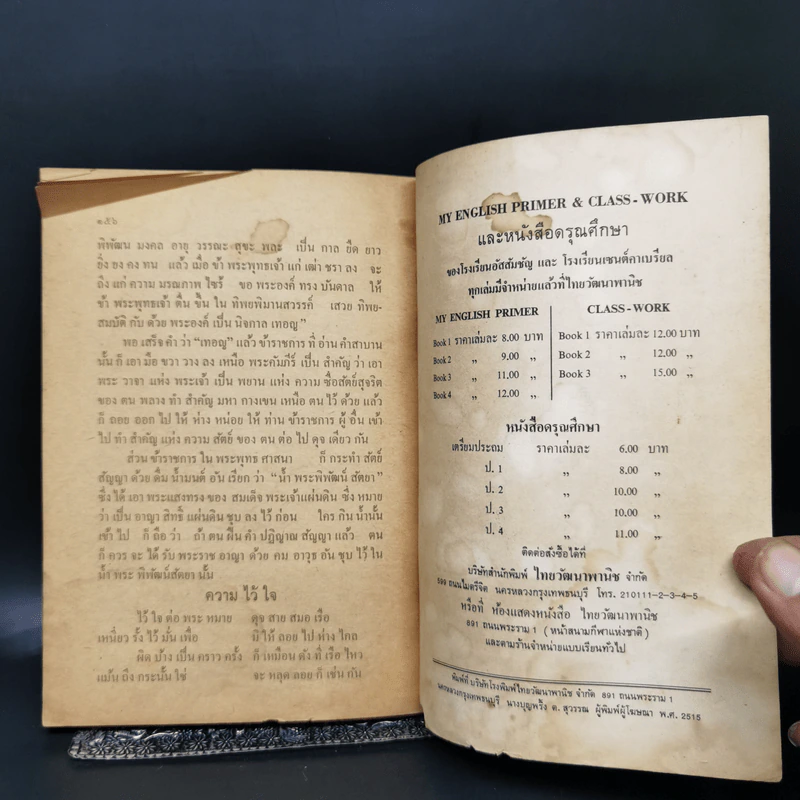 ๑๕๖
พิพัฒน มงคล อายุ วรรณะ สุขะ พละ เป็น กาล ยืด ยาว
ยั่ง ยง คง ทน แล้ว เมื่อ ข้า พระพุทธเจ้า แก่ เฒ่า ชรา ลง จะ
ถึง แก่ ความ มรณภาพ ไซร้ ขอ พระองค์ ทรง บันดาล ให้
ข้า พระพุทธเจ้า ตื่น ขึ้น ใน ทิพยพิมานสวรรค์ เสวย ทิพย-
สมบัติ กับ ด้วย พระองค์ เป็น นิจกาล เทอญ”
พอ เสร็จ คำ ว่า “เทอญ” แล้ว ข้าราชการ ที่ อ่าน คำสาบาน
นั้น ก็ เอา มือ ขวา วาง ลง เหนือ พระคัมภีร์ เป็น สำคัญ ว่า เอา
พระ วาจา แห่ง พระเจ้า เป็น พยาน แห่ง ความ ซื่อสัตย์สุจริต
ของ ตน พลาง ทำ สำคัญ มหา กางเขน เหนือ ตน ไว้ ด้วย แล้ว
ก็ ถอย ออก ไป ให้ ห่าง หน่อย ให้ ท่าน ข้าราชการ ผู้ อื่น เข้า
ไป ทำ สำคัญ แห่ง ความ สัตย์ ของ ตน ต่อ ไป ดุจ เดียว กัน
ส่วน ข้าราชการ ใน พระพุทธ ศาสนา ก็ กระทำ สัตย์
สัญญา ด้วย ดื่ม น้ำมนต์ อัน เรียก ว่า “น้ำ พระพิพัฒน์ สัตยา”
ซึ่ง ได้ เอา พระแสงทรง ของ สมเด็จ พระเจ้าแผ่นดิน ซึ่ง หมาย
ว่า เป็น อาญา สิทธิ์ แผ่นดิน ชุบ ลง ไว้ ก่อน ใคร กิน น้ำนั้น
เข้า ไป ก็ ถือ ว่า ถ้า ตน ฝืน คำ ปฏิญาณ สัญญา แล้ว ตน
ก็ ควร จะ ได้ รับ พระราช อาญา ด้วย คม อาวุธ อัน ชุบ ไว้ ใน
น้ำ พระ พิพัฒน์สัตยา นั้น
ความ ไว้ ใจ
ไว้ ใจ ต่อ พระ หมาย ดุจ สาย สมอ เรือ
เหนี่ยว รั้ง ไว้ มั่น เพื่อ มิ ให้ ลอย ไป ห่าง ไกล
ผิด บ้าง เป็น คราว ครั้ง ก็ เหมือน ดัง ที่ เรือ ไหว
แม้น ถึง กระนั้น ใช่ จะ หลุด ลอย ก็ เช่น กัน
MY ENGLISH PRIMER & CLASS-WORK
และหนังสือดรุณศึกษา
ของโรงเรียนอัสสัมชัญ และ โรงเรียนเซนต์คาเบรียล
ทุกเล่มมีจำหน่ายแล้วที่ไทยวัฒนาพานิช
MY ENGLISH PRIMER
Book 1 ราคาเล่มละ 8.00 บาท
Book 2 ,, 9.00 ,,
Book 3 ,, 11.00 ,,
Book 4 ,, 12.00 ,,
CLASS-WORK
Book 1 ราคาเล่มละ 12.00 บาท
Book 2 ,, 12.00 ,,
Book 3 ,, 15.00 ,,
หนังสือดรุณศึกษา
เตรียมประถม ราคาเล่มละ 6.00 บาท
ป. 1 ,, 8.00 ,,
ป. 2 ,, 10.00 ,,
ป. 3 ,, 10.00 ,,
ป. 4 ,, 11.00 ,,
ติดต่อสั่งซื้อได้ที่
บริษัทสำนักพิมพ์ ไทยวัฒนาพานิช จำกัด
599 ถนนไมตรีจิต นครหลวงกรุงเทพธนบุรี โทร. 210111-2-3-4-5
หรือที่ ห้องแสดงหนังสือ ไทยวัฒนาพานิช
891 ถนนพระราม 1 (หน้าสนามกีฬาแห่งชาติ)
และตามร้านจำหน่ายแบบเรียนทั่วไป
พิมพ์ที่ บริษัทโรงพิมพ์ไทยวัฒนาพานิช จำกัด 891 ถนนพระราม 1
นครหลวงกรุงเทพธนบุรี นางบุญพริ้ง ต. สุวรรณ ผู้พิมพ์ผู้โฆษณา พ.ศ. 2515